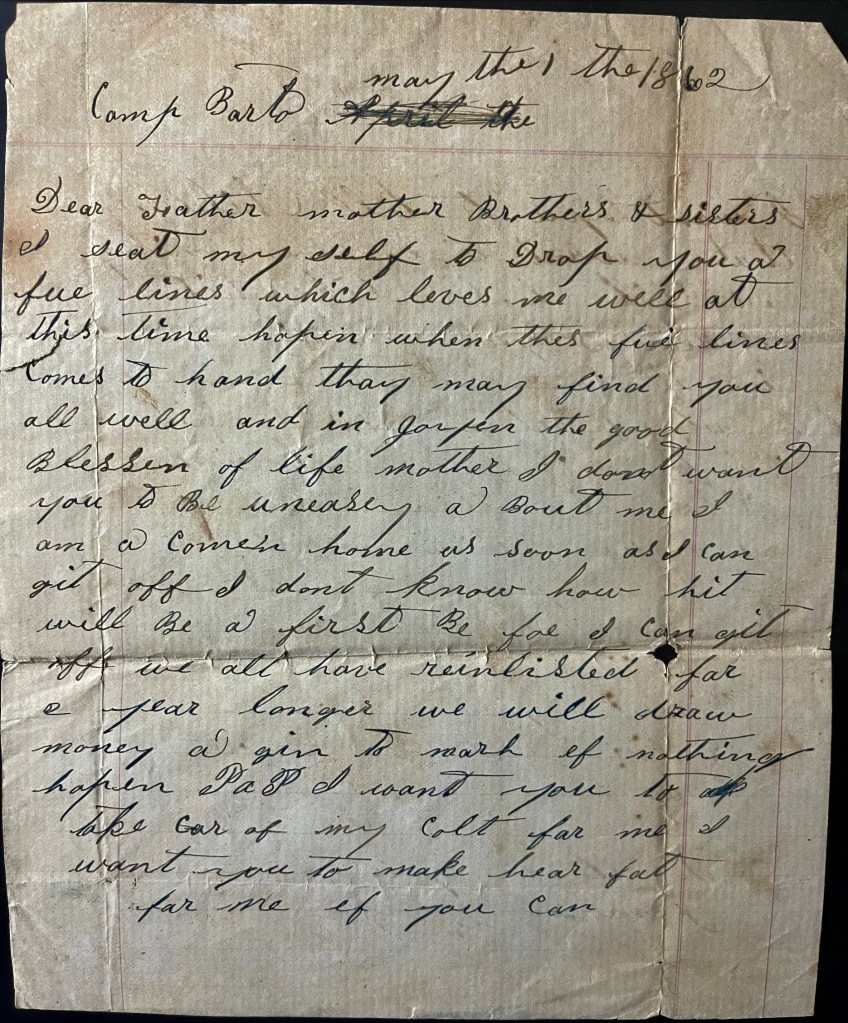 may the 1 the 1862
Camp Barto April the
Dear Feather mother Brothers & sisters
I seat my self to Drop you a
fue lines which leves me well at
this time hopen when thes fue lines
Comes to hand thay may find you
all well and in Joyen the good
Blessen of life mother I dont want
you to Be uneasey a Bout me I
am a Comen home as soon as I Can
git off I dont know how hit
will Be a first Be foe I Can git
off we all have reinlisted far
a year longer we will draw
money a gin to morh ef nothing
hapen PaP I want you to
take Car of my Colt far me I
want you to make hear fat
far me ef you Can